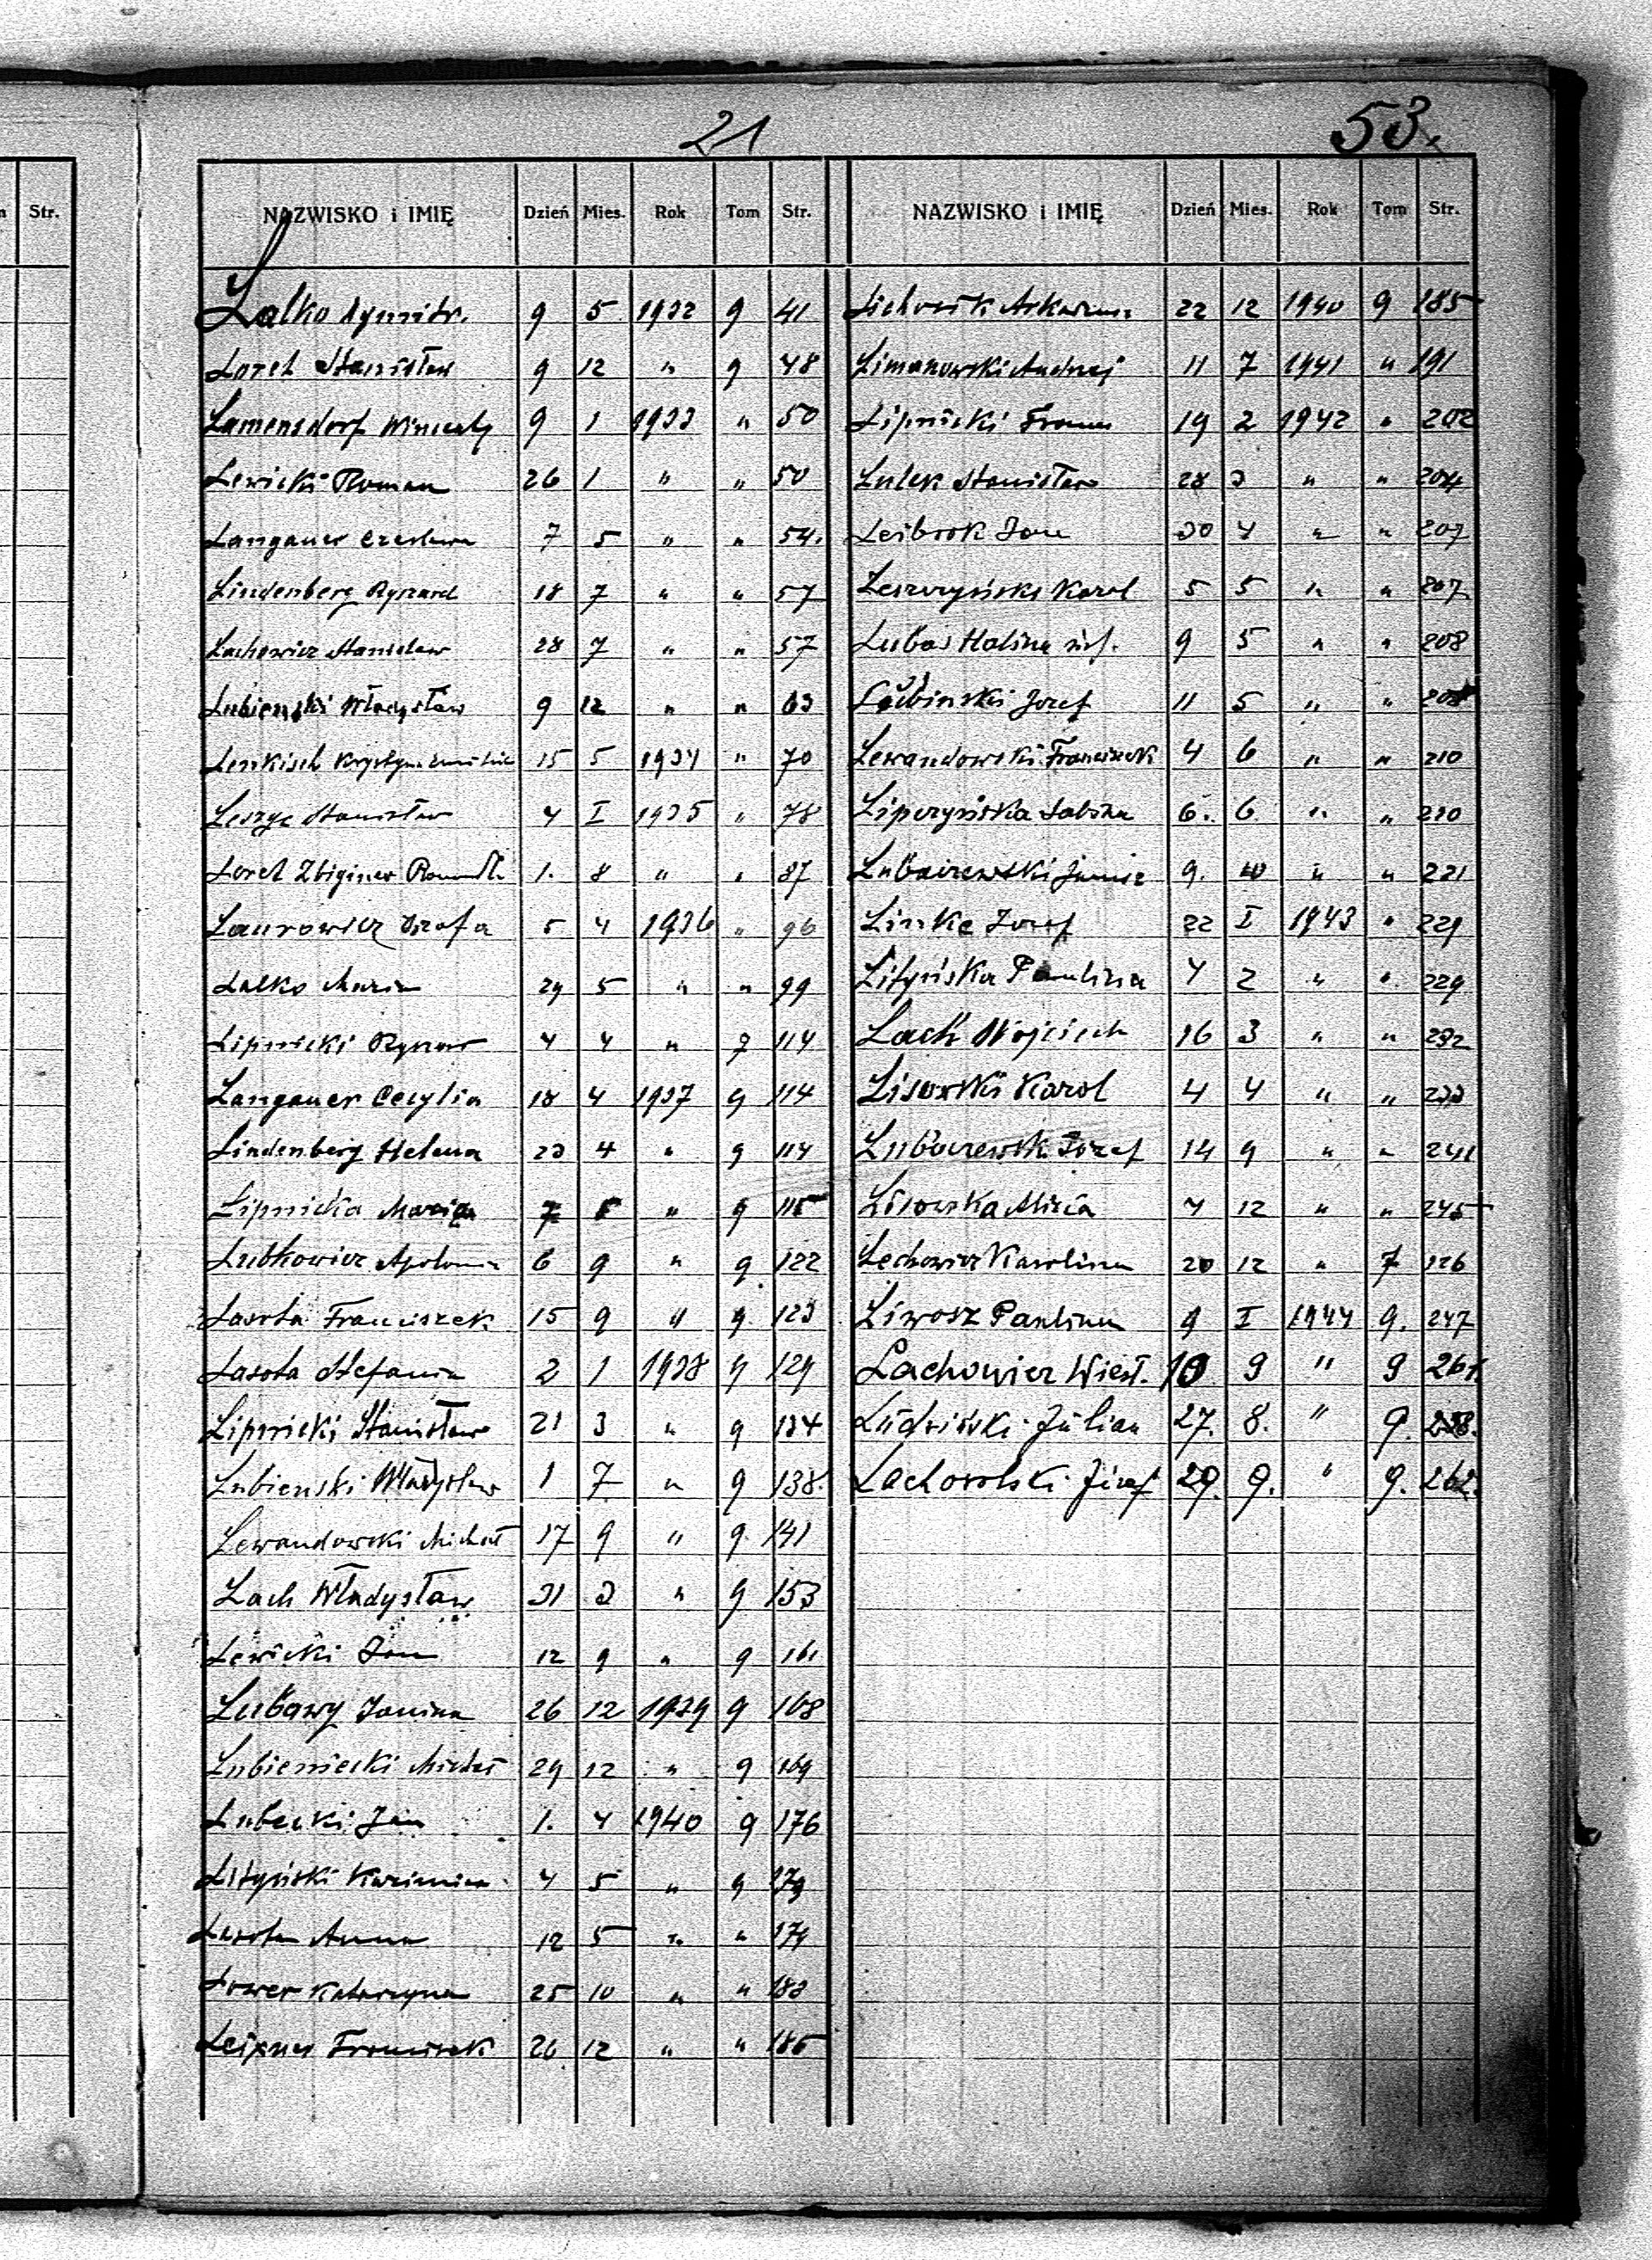 21 53.
Str.
NAZWISKO i IMIĘ Dzień Mies. Rok Tom Str.
Lalko Dymitr. 9 5 1932 9 41
Loreth Stanisław 9 12 " 9 48
Lamensdorf Wincenty 9 1 1933 " 50
Lewicki Roman 26 1 " " 50
Langauer Czesława 7 5 " " 54.
Lindenberg Ryszard 18 7 " " 57
Lachowicz Stanisław 28 7 " " 57
Lubienski Władysław 9 12 " " 63
Lenkisch Krystyna 15 5 1934 " 70
Leszyc Stanisław 4 I 1935 " 78
Loret Zbigniew 1. 8 " " 87
Laurowicz Józefa 5 4 1936 " 96
Lalko Maria 29 5 " " 99
Lipnicki 4 4 " 7 114
Langauer Cecylia 18 4 1937 9 114
Lindenberg Helena 23 4 " 9 114
Lipnicka Maria 7 5 " 9 115
Lubkowicz Apolonia 6 9 " 9 122
Lasota Franciszek 15 9 " 9 123
Lasota Stefania 2 1 1938 9 129
Lipnicki Stanisław 21 3 " 9 134
Lubienski Władysław 1 7 " 9 138.
Lewandowski Michał 17 9 " 9 141
Lach Władysław 31 3 " 9 153
Lewicki Jan 12 9 " 9 161
Lubawy Janina 26 12 1939 9 168
Lubieniecki Michał 29 12 " 9 169
Lubecki Jan 1. 4 1940 9 176
Lityński Kazimierz 4 5 " 9 179
Lasota Anna 12 5 " " 179
Katarzyna 25 10 " " 183
Leixner Franciszek 26 12 " " 185
NAZWISKO i IMIĘ Dzień Mies. Rok Tom Str.
22 12 1940 9 185
Limanowski Andrzej 11 7 1941 " 191
Lipnicki Franc 19 2 1942 " 202
Lulek Stanisław 28 3 " " 204
Leibrok Jan 30 4 " " 207
Leszczyński Karol 5 5 " " 207
Lubas Halina 9 5 " " 208
Łubinski Józef 11 5 " " 208
Lewandowski Franciszek 4 6 " " 210
Lipczyńska Sabina 6. 6 " " 210
Lubaczewski Janusz 9. 10 " " 221
Linke Józef 22 I 1943 " 229
Lityńska Paulina 4 2 " " 229
Lach Wojciech 16 3 " " 232
Lisowski Karol 4 4 " " 233
Lubaczewski Józef 14 9 " " 241
Lisowska Alicia 4 12 " " 245
Lechowicz Karolina 20 12 " 7 126
Liwosz Paulina 9 I 1944 9. 247
Lachowicz Wiesł. 10 9 " 9 261.
Ludziński Julian 27. 8. " 9. 258.
Lachowolski Józef 29. 9. " 9. 262.